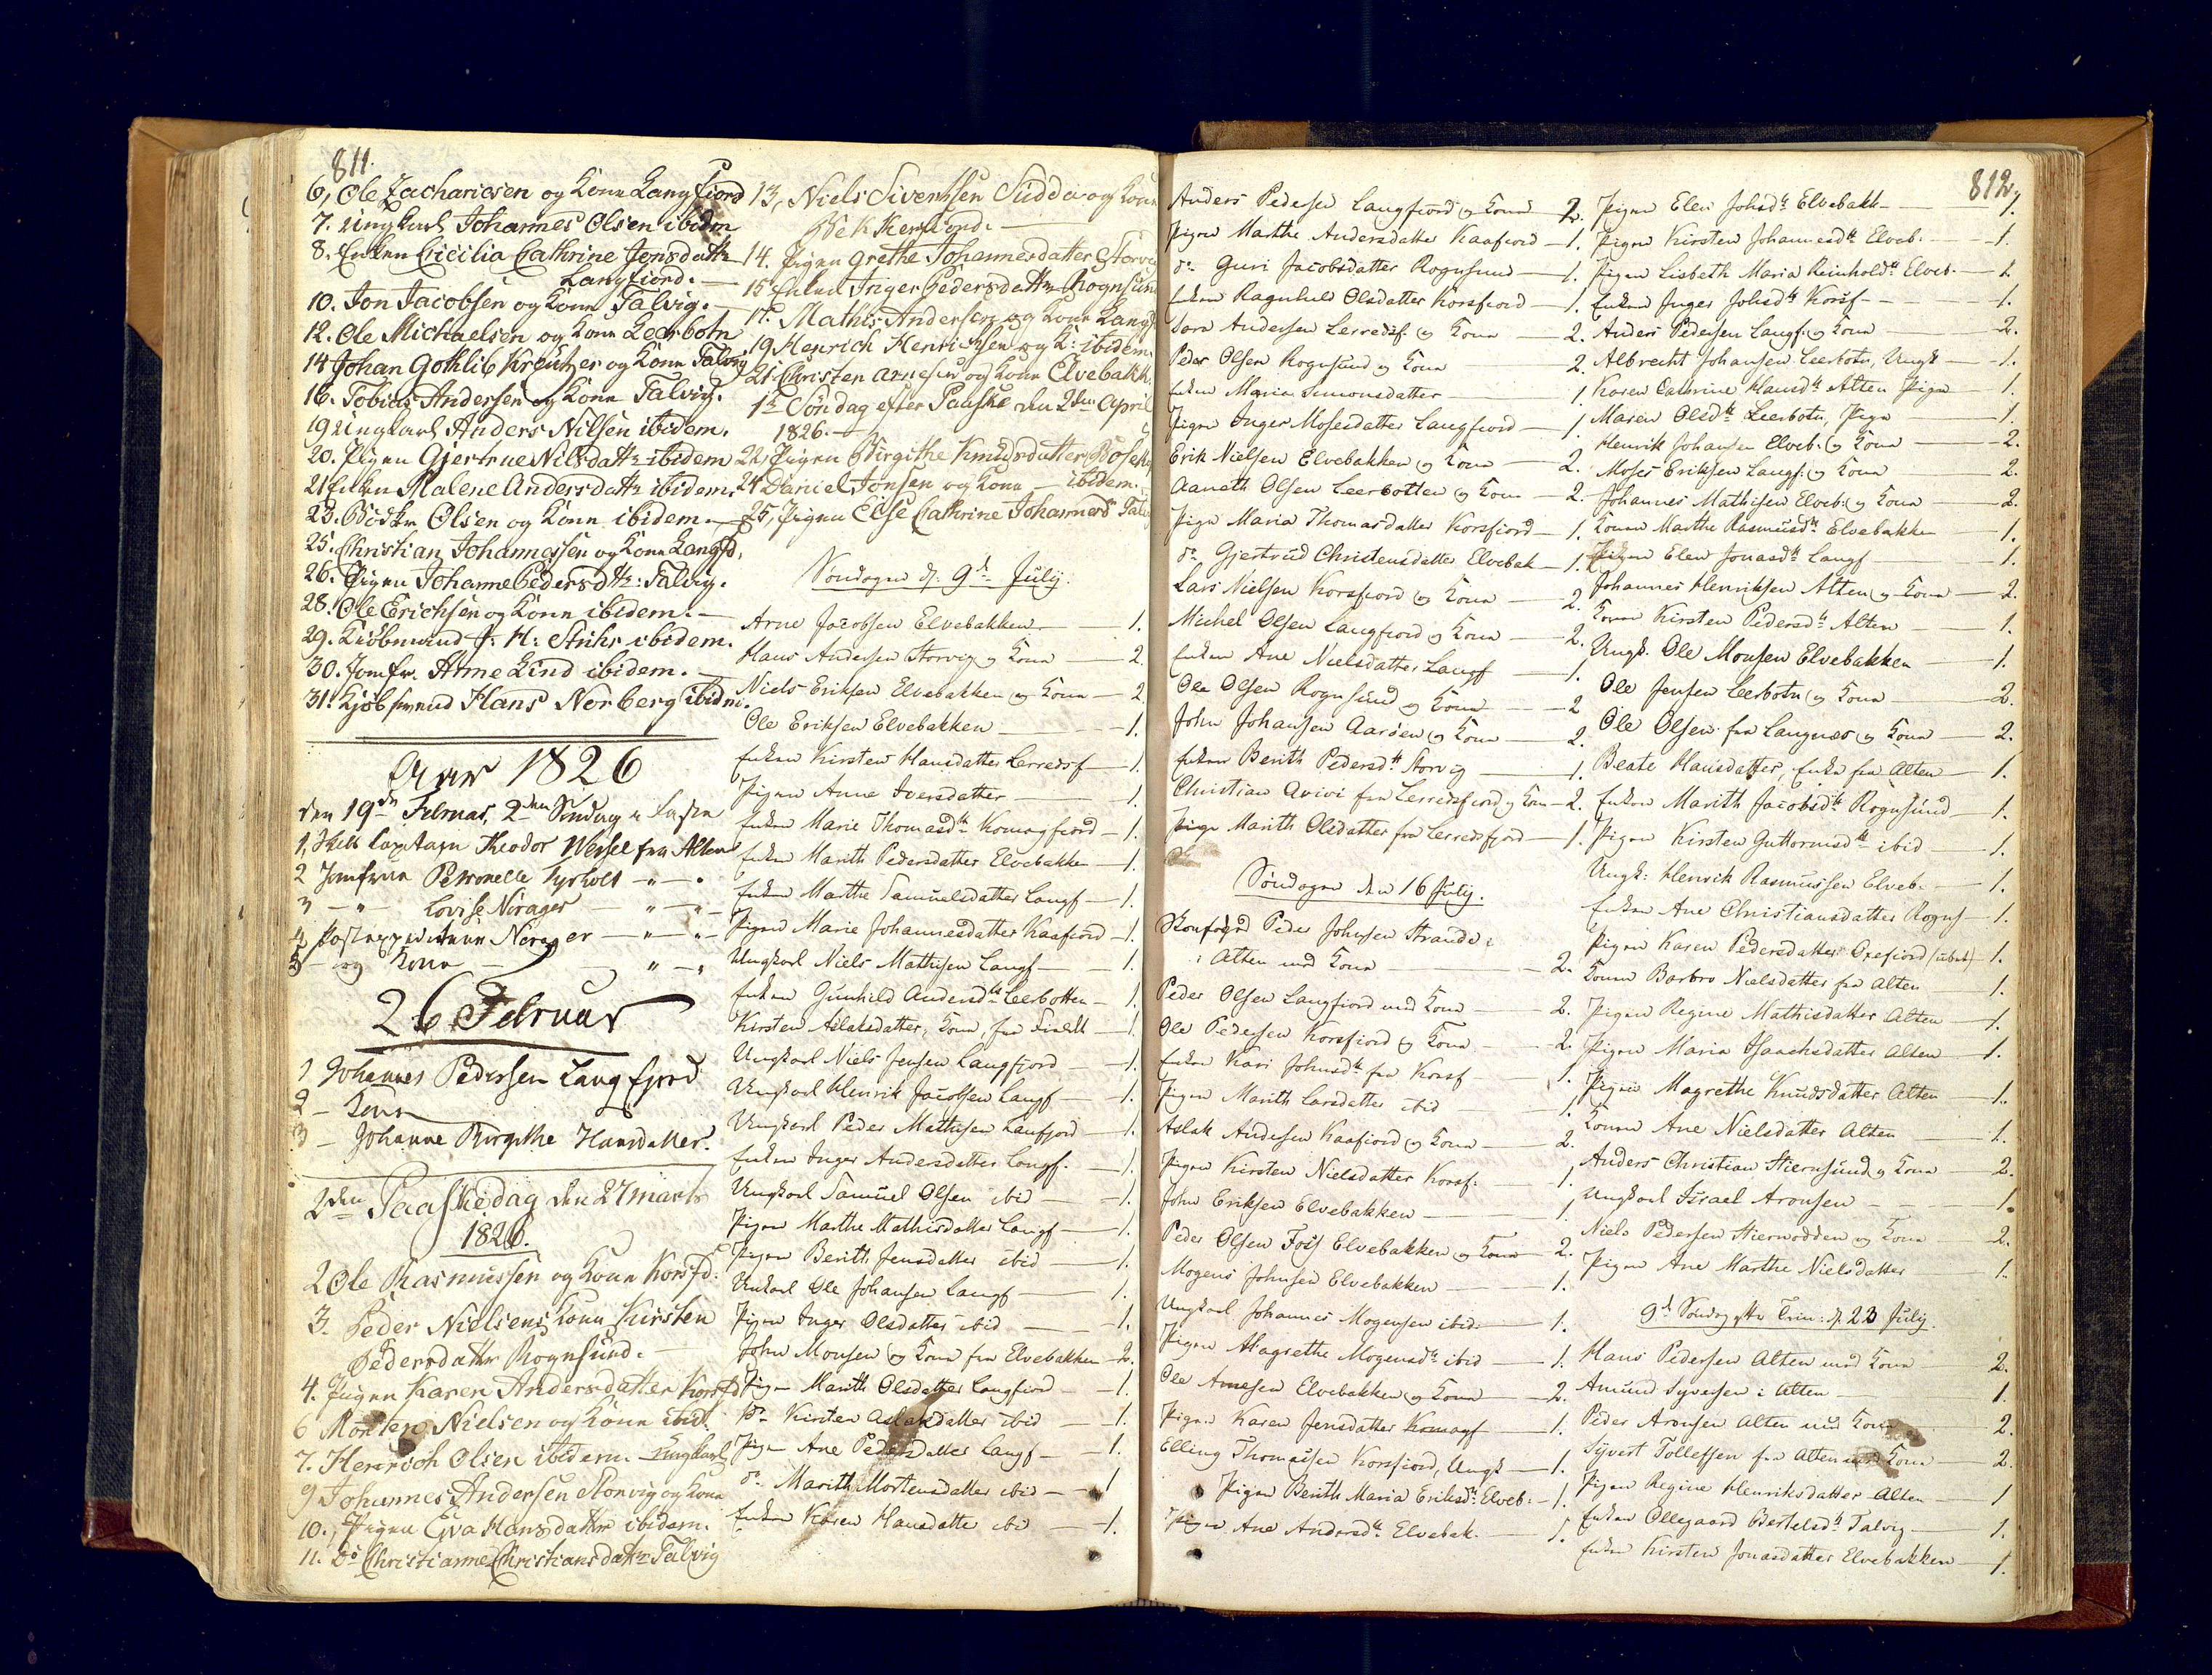 811.
6, Ole Zachariesen og Kone Langfiord
7. Ungkarl Johannes Olsen ibidm
8. Enken Cicilia Cathrine Jensdattr
Langfiord. —
10. Jon Jacobsen og Kone Talvig. —
12. Ole Michaelsen og Kone Leerbotn
14 Johan Gothlib Kreutzer og Kone Talvig
16. Tobias Andersen og Kone Talvig.
19 Ungkarl Anders Nilsen ibidem.
20. Pigen Gjertrue Nilsdattr ibidem
21 Enken Malene Andersdattr ibidem.
23. Olsen og Kone ibidem. —
25. Christian Johannessen og Kone Langfd.
26. Pigen Johanne Pedersdttr: Talvig.
28. Ole Erichsen og Kone ibidem. —
29. Kiöbmand J: H: ibidem.
30. Jomfr. Anne Lind ibidem. —
31. Kjöbmand Hans Norberg ibidm.
Aar 1826
den 19de Februar, 2den Söndag i Fasten
1, Capitain Theodor Wessel fra Alten
2 Jomfrue Petronelle Tyrholt — " — "
3 — " — Lovise Norager — " — " —
4 Norager — " — " —
5 — og Kone — " — "
26 Februar
1 Johannes Pedersen Langfjord
2 — Kone
3 — Johanne Birgithe Hansdatter.
2den Paaskedag den 27 Marts
1826.
2 Ole Rasmussen og Kone Korsfd:
3. Peder Nielsens Kone Kirsten
Pedersdattr Rognsund. —
4. Pigen Karen Andersdatter Korsfd
6 Morten Nielsen og Kone ibid.
7. Henrich Olsen ibidem. Ungkarl
9 Johannes Andersen Storvig og Kone
10., Pigen Eva Hansdattr ibidem.
11. Do Christianne Christiansdattr Talvig
13, Niels Sivertsen og Kone
14. Pigen Grethe Johannesdatter Storvig
15 Enken Inger Pedersdattr Rognsund
17. Mathis Andersen og Kone Langf
19 Henrich Henrichsen og K: ibidem.
21 Christen Arnesen og Kone Elvebakk.
1ste Söndag efter Paaske den 2den April
1826. —
22, Pigen Birgithe Knudsdatter
24 Daniel Jonsen og Kone — ibidem. —
25, Pigen Else Cathrine Johannesd Talvig
Söndagen d. 9de Julij.
Arne Jacobsen Elvebakken — 1.
Hans Andersen Storvig og Kone — 2.
Niels Eriksen Elvebakken og Kone — 2
Ole Eriksen Elvebakken — 1.
Enken Kirsten Hansdatter Lerredsf — 1.
Pigen Anne Iversdatter — 1.
Enken Marie Thomasdtr Komagfiord — 1.
Enken Marith Pedersdatter Elvebakken — 1.
Enken Marthe Samuelsdatter Langf — 1.
Pigen Marie Johannesdatter Kaafiord — 1.
Ungkarl Niels Mathisen Langf — 1.
Enken Gunhild Andersdtr Leerbotten — 1.
Kirsten Aslaksdatter, Kone, fra — 1.
Ungkarl Niels Jensen Langfjord — 1.
Ungkarl Henrik Jacobsen Langf — 1.
Ungkarl Peder Mathisen Langfjord — 1.
Enken Inger Andersdatter Langf. — 1.
Ungkarl Samuel Olsen ibid — 1.
Pigen Marthe Mathisdatter Langf — 1.
Pigen Berith Jensdatter ibid — 1.
Unkarl Ole Johansen Langf — 1.
Pigen Inger Olsdatter ibid — 1.
John Monsen og Kone fra Elvebakken — 2.
Pigen Marith Olsdatter Langfiord — 1.
Do Kirsten Aslaksdatter ibid — 1.
Pigen Ane Pedersdatter Langf — 1.
do Marith Mortensdatter ibid — 1
Enken Karen Hansdatter ibid — 1.
812.
Anders Pedersen Langfiord og Kone — 2.
Pigen Marthe Andersdatter Kaafiord — 1.
do Guri Jacobsdatter Rognsund — 1.
Enken Ragnhild Olsdatter Korsfiord — 1.
Andersen Lerredsf. og Kone — 2.
Peder Olsen Rognsund og Kone — 2.
Enken Maria Simonsdatter — 1.
Pigen Inger Mosesdatter Langfiord — 1
Erik Nielsen Elvebakken og Kone — 2.
Olsen Leerbotten og Kone — 2.
Pigen Maria Thomasdatter Korsfiord — 1.
do Gjertrud Christensdatter Elvebak — 1.
Lars Nielsen Korsfiord og Kone — 2.
Michel Olsen Langfiord og Kone — 2.
Enken Ane Nielsdatter Langf — 1.
Ole Olsen Rognsund og Kone — 2
John Johansen Aaröen og Kone — 2.
Enken Berith Pedersdtr Storvig — 1.
Christian Avivi fra Lerredsfiord og Kone — 2.
Pige Marith Olsdatter fra Lerredsfjord — 1.
Söndagen den 16 Julij.
Peder Johnsen Strande
i Alten med Kone — 2.
Peder Olsen Langfiord med Kone — 2.
Ole Pedersen Korsfiord og Kone — 2.
Enken Kari Johnsdtr fra Korsf — 1.
Pigen Marith Larsdatter ibid — 1.
Aslak Andersen Kaafiord og Kone — 2.
Pigen Kirsten Nielsdatter Korsf: — 1.
John Eriksen Elvebakken — 1
Peder Olsen Foss Elvebakken og Kone — 2.
Mogens Johnsen Elvebakken — 1.
Ungkarl Johannes Mogensen ibid. — 1.
Pigen Magrethe Mogensdtr ibid — 1.
Ole Arnesen Elvebakken og Kone — 2.
Pigen Karen Jensdatter Komagf — 1.
Elling Thomasen Korsfiord, Ungk — 1.
Pigen Berith Maria Eriksdtr Elveb: — 1.
Pigen Ane Andersdtr Elvebak. — 1.
Pigen Elen Johsdtr Elvebakk — 1.
Pigen Kirsten Johannesdtr Elveb. — 1.
Pigen Lisbeth Maria Reinholdtr Elveb. — 1.
Enken Inger Johsdtr Korsf — 1.
Anders Pedersen Langf: og Kone — 2.
Albrecht Johansen Leerbotn, Ungk — 1.
Karen Catrine Hansdtr Alten Pigen — 1.
Maren Olsdtr Leerbotn, Pige — 1.
Henrik Johansen Elveb. og Kone — 2.
Moses Eriksen Langf: og Kone — 2.
Johannes Mathisen Elveb: og Kone — 2.
Konen Marthe Rasmusdtr Elvebakken — 1.
Pigen Elen Jonasdtr Langf — 1.
Johannes Henriksen Alten og Kone — 2.
Konen Kirsten Pedersdtr Alten — 1.
Ungk. Ole Monsen Elvebakken — 1.
Ole Jensen Leerbotn og Kone — 2.
Ole Olsen fra Langnæs og Kone — 2.
Beate Hansdatter, Enke fra Alten — 1.
Enken Marith Jacobsdtr Rognsund — 1.
Pigen Kirsten Guttormsdtr ibid — 1.
Ungk: Henrik Rasmussen Elveb. — 1.
Enken Ane Christiansdatter Rogns — 1.
Pigen Karen Pedersdatter Oxefiord — 1.
Konen Barbro Nielsdatter fra Alten — 1.
Pigen Regine Mathisdatter Alten — 1.
Pigen Maria Isaachsdatter Alten — 1.
Pigen Magrethe Knudsdatter Alten — 1.
Konen Ane Nielsdatter Alten — 1.
Anders Christian Stiernsund og Kone — 2.
Ungkarl Israel Aronsen — 1.
Niels Pedersen og Kone — 2.
Pigen Ane Marthe Nielsdatter — 1.
9de Söndag efter Trin: d. 23 Julij.
Hans Pedersen Alten med Kone — 2.
Amund Syversen i Alten — 1.
Peder Aronsen Alten med Kone — 2.
Syvert Tollefsen fra Alten med Kone — 2.
Pigen Regine Henriksdatter Alten — 1
Enken Ollegaard Bertelsdtr Talvig — 1.
Enken Kirsten Jonasdatter Elvebakken — 1.